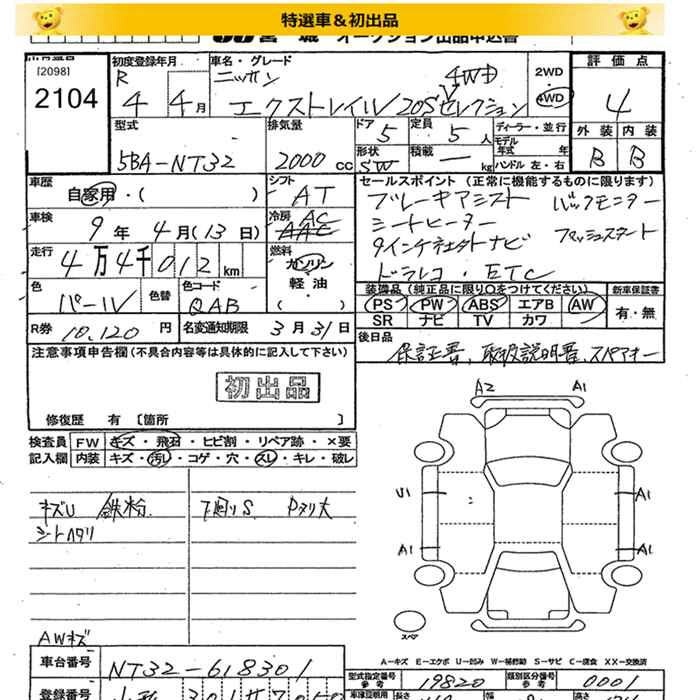 特選車＆初出品
JU宮城 オークション出品申込書
出品番号
[2098]
2104
初度登録年月
R 4 年 4 月
車名・グレード
ニッサン 4WD
エクストレイル 20S Vセレクション
2WD
4WD
評価点
4
外装 内装
B B
型式
5BA-NT32
排気量
2000 cc
ドア
5
定員
5 人
形状
SW
積載
ー kg
ディーラー・並行
モデル年式 年
ハンドル 左・右
車歴
自家用・( )
シフト
AT
車検
9 年 4 月 (13 日)
冷房 AC
AAC
走行
4万4千012 km
燃料
ガソリン
軽油
・( )
色
パール
色替
色コード
QAB
R券
10,120 円
名変通知期限 3月31日
セールスポイント（正常に機能するものに限ります）
ブレーキアシスト バックモニター
シートヒーター
9インチコネクトナビ プッシュスタート
ドラレコ・ETC
装備品（純正品に限り○をつけてください）
新車保証書
PS PW ABS エアB AW
SR ナビ TV カワ
有・無
後日品
保証書、取扱説明書、スペアキー
注意事項申告欄(不具合内容等は具体的に記入して下さい)
初出品
修復歴 有 〔箇所 〕
検査員 FW キズ・飛石・ヒビ割・リペア跡・×要
記入欄 内装 キズ・汚れ・コゲ・穴・スレ・キレ・破レ
キズU 鉄粉 下廻りS Pヌリ大
シートヘタリ
AWキズ
A2 A1
U1 A1
A1 A1
スペア
A－キズ E－エクボ U－凹み W－補修跡 S－サビ C－腐食 XX－交換済
車台番号
NT32-618301
型式指定番号
参考
19820
類別区分番号
参考
0001
登録番号
山形 301
車検証明用
長さ
幅
高さ